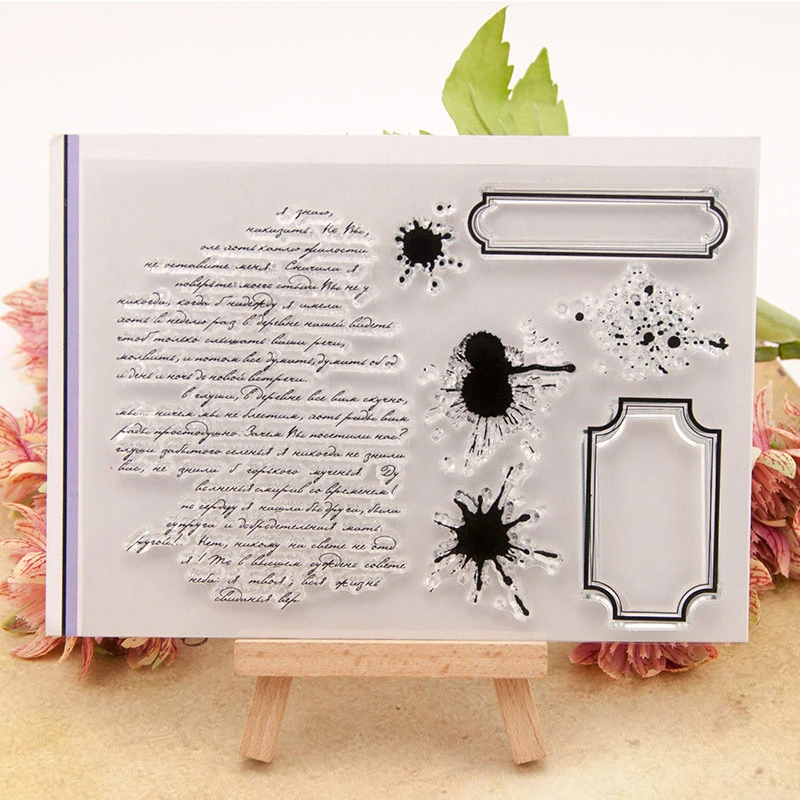 я знаю,
наказать. Но Вы,
оле хоть каплю жалости
не оставите меня. Сначала я
поверьте: моего стыда Вы не у
никогда, когда б надежду я имела
хоть в неделю раз в деревне нашей видеть
чтоб только слышать ваши речи,
молвить, и потом все думать, думать об од
и день и ночь до новой встречи.
в глуши, в деревне все вам скучно,
мы... ничем мы не блестим, хоть рады вам
рады простодушно. Зачем Вы посетили нас?
глуши забытого селенья я никогда не знала
вас, не знала б горького мученья. Ду
волненья смирив со временем
по сердцу я нашла бы друга, была
супруга и добродетельная мать.
ругой!.. Нет, никому на свете не отд
я! То в высшем суждено совете
неба: я твоя; вся жизнь
свиданья вер